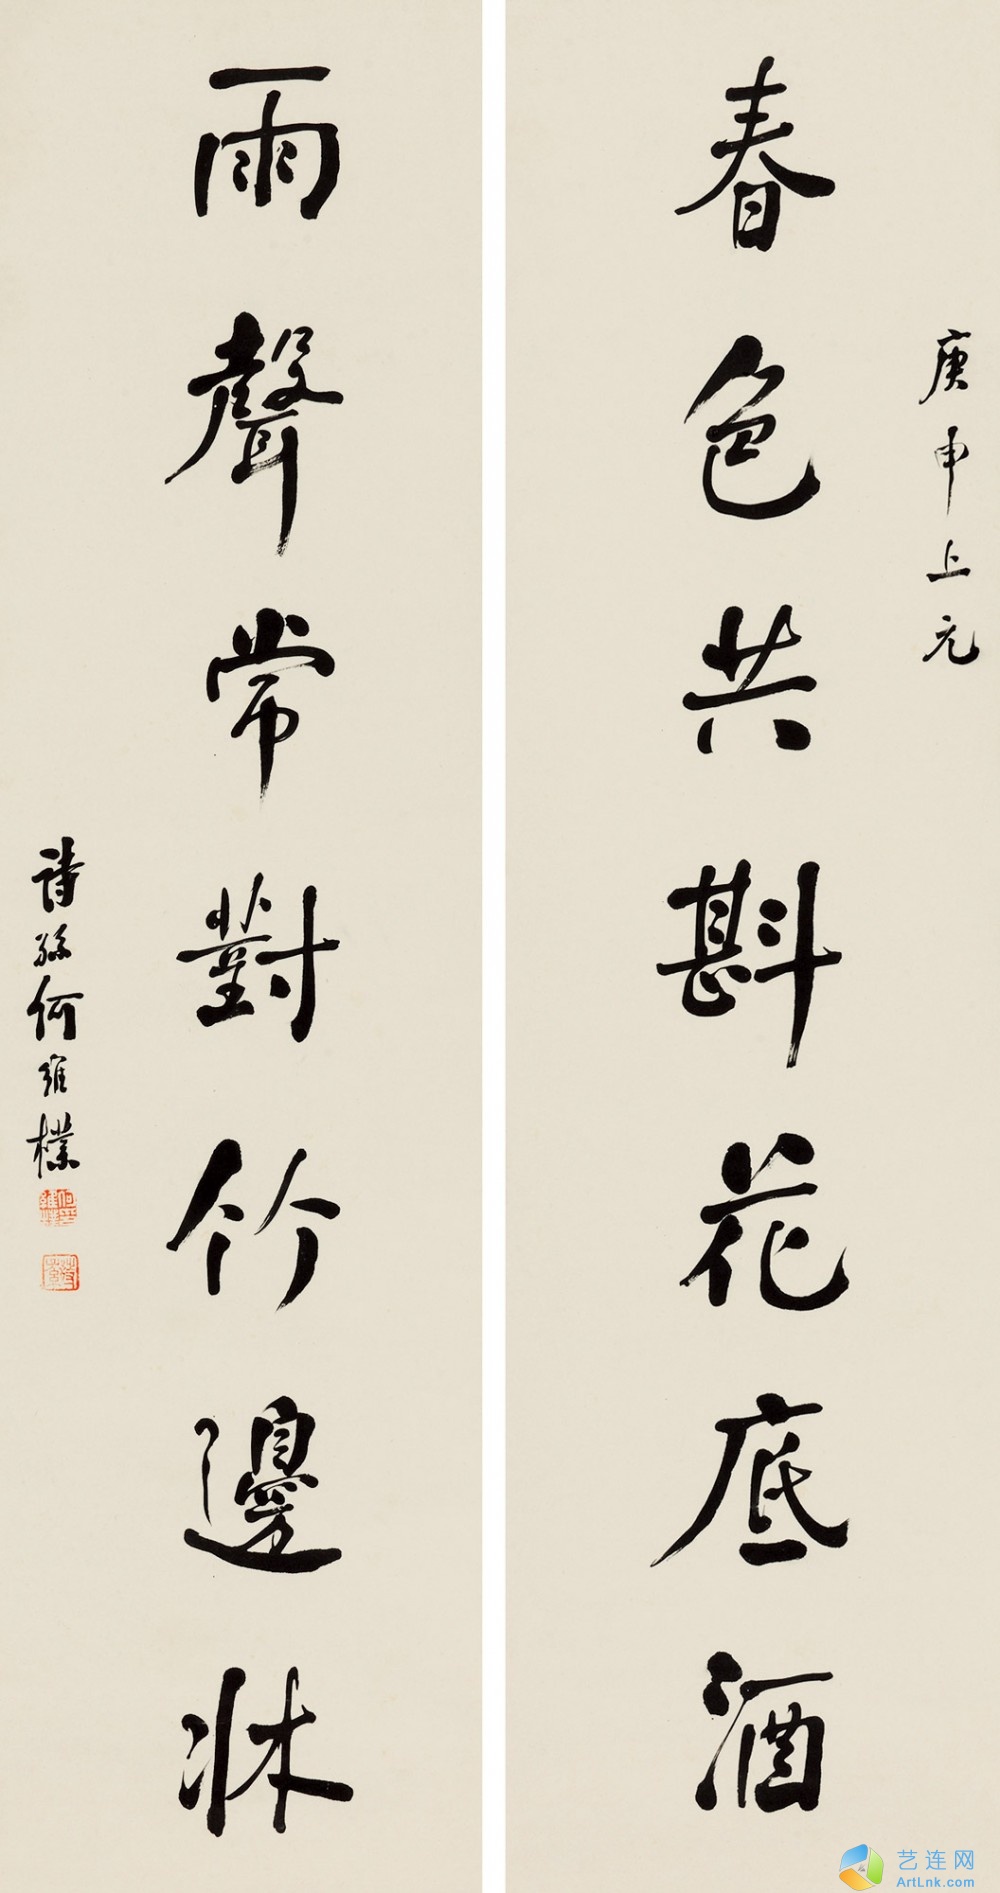 庚申上元
春色共斟花底酒
雨聲常對竹邊牀
詩孫何維樸
艺连网
ArtLnk.com